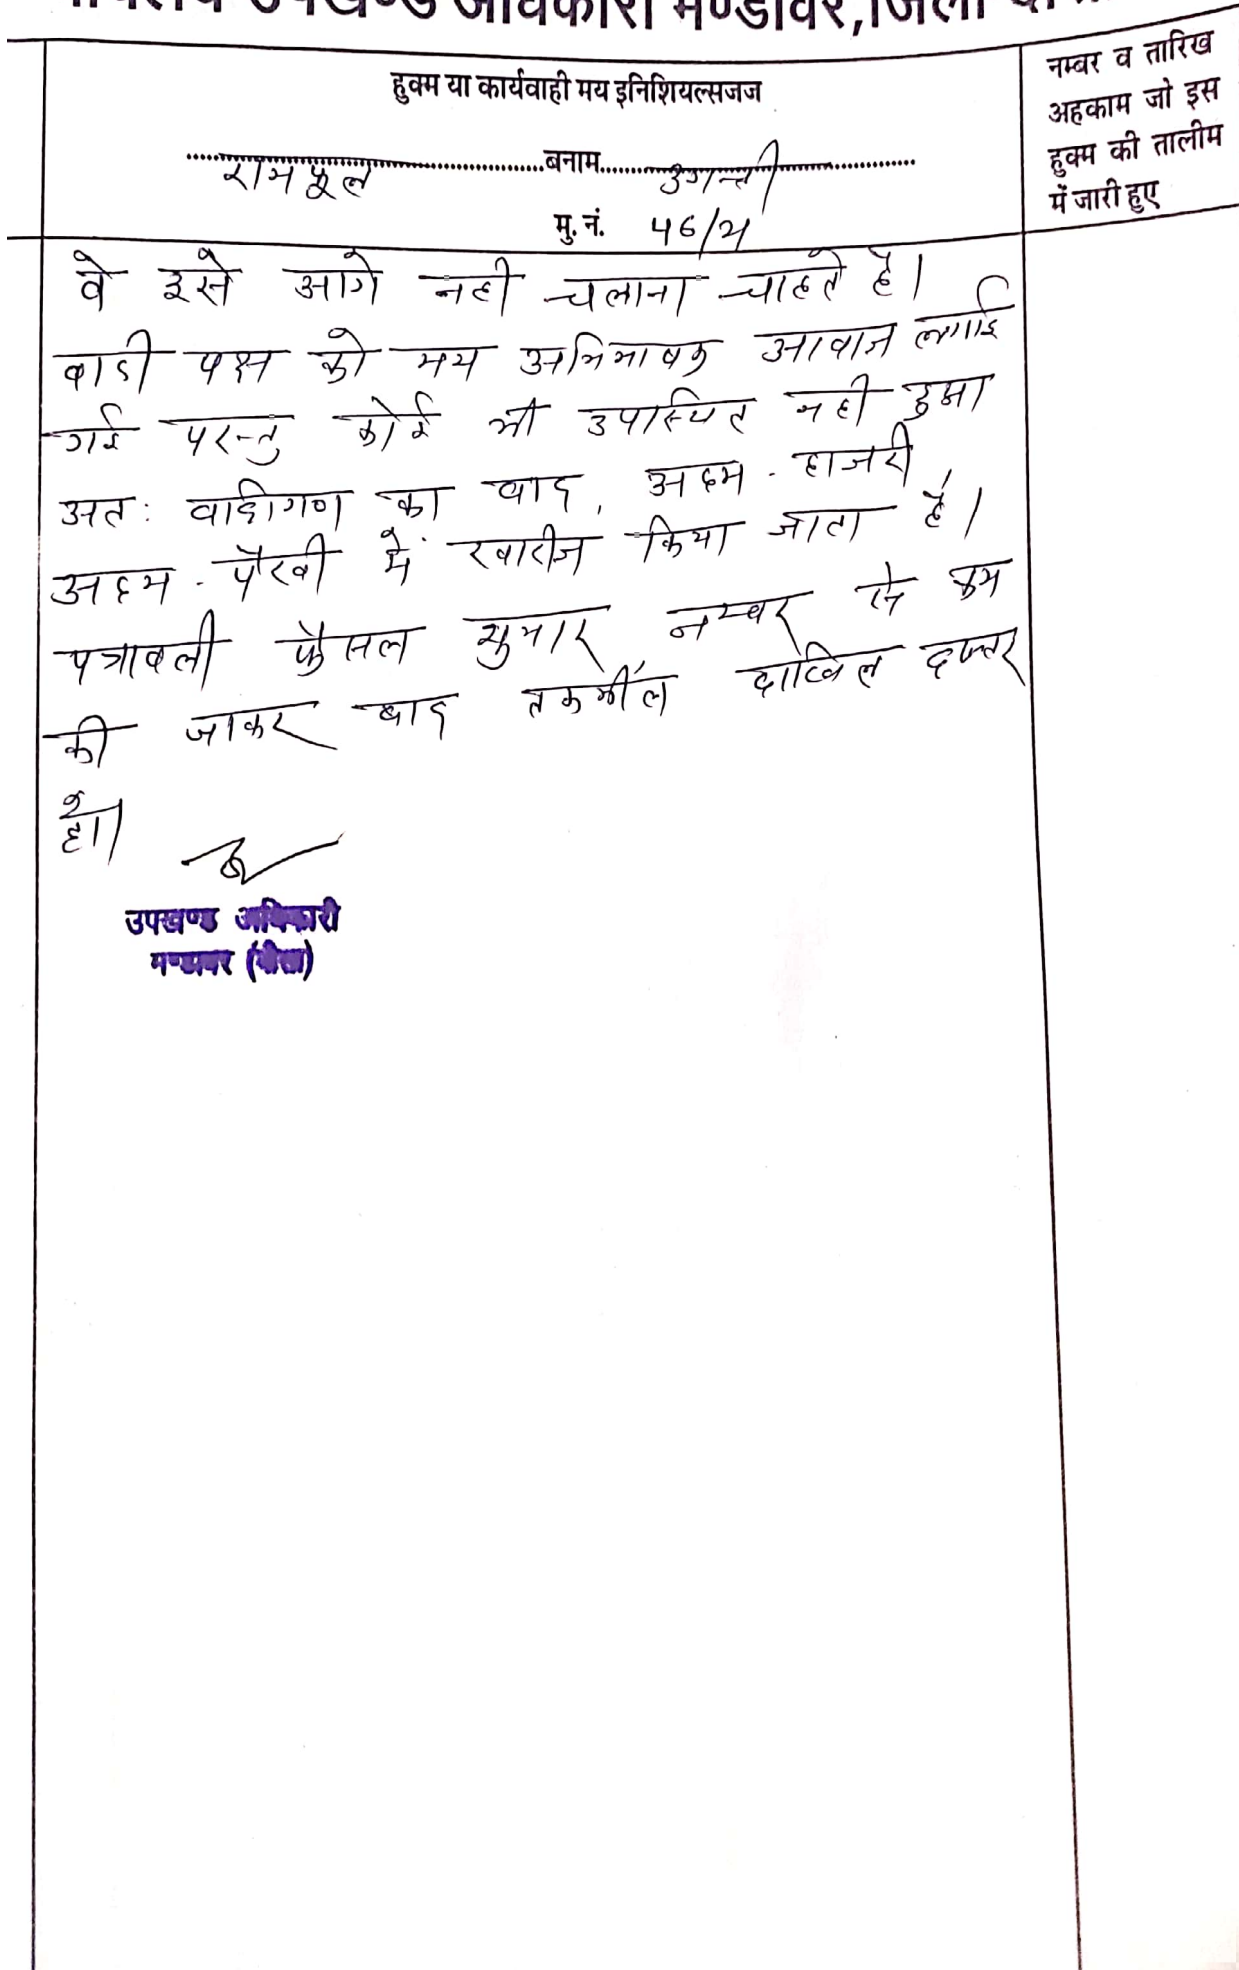 उपखण्ड अधिकारी मण्डावर,जिला
हुक्म या कार्यवाही मय इनिशियल्सजज
नम्बर व तारिख
अहकाम जो इस
हुक्म की तालीम
में जारी हुए
रामफूल बनाम उगन्ती
मु. नं. 46/21
वे इसे आगे नही चलाना चाहते है।
वादी पक्ष को मय अभिभाषक आवाज लगाई
गई परन्तु कोई भी उपस्थित नही हुआ
अतः वादीगण का वाद, अदम - हाजरी,
अदम - पैरवी में खारीज किया जाता है।
पत्रावली फैसल शुमार नम्बर से कम
की जाकर बाद तकमील दाखिल दफ्तर
हो।
उपखण्ड अधिकारी
मण्डावर (दौसा)